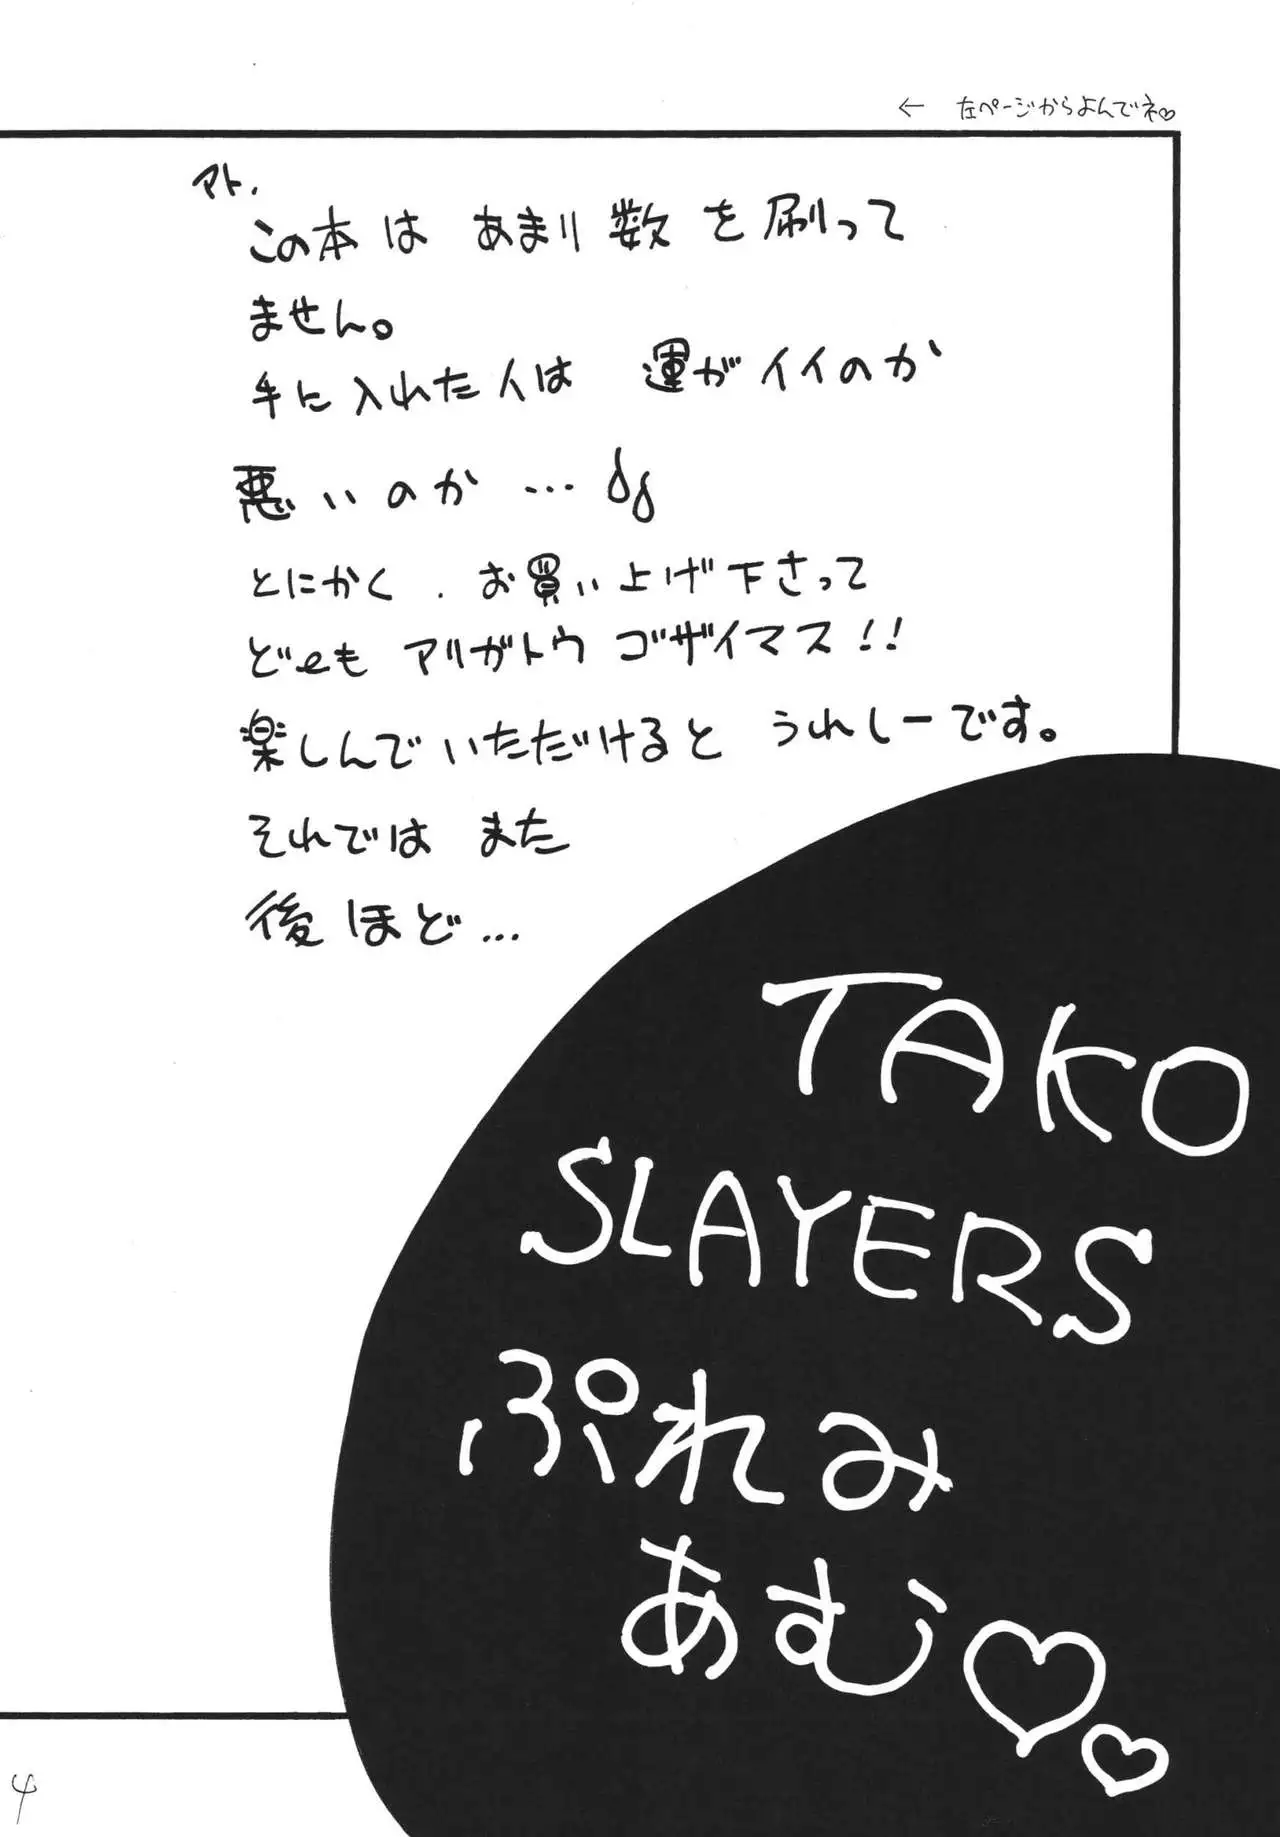 ← 左ページからよんでネ♡
アト.
この本は あまり数を刷って
ません。
手に入れた人は 運がイイのか
悪いのか …
とにかく. お買い上げ下さって
どーも アリガトウ ゴザイマス!!
楽しんでいただけると うれしーです。
それでは また
後ほど…
TAKO
SLAYERS
ぷれみ
あむ♡♡
4